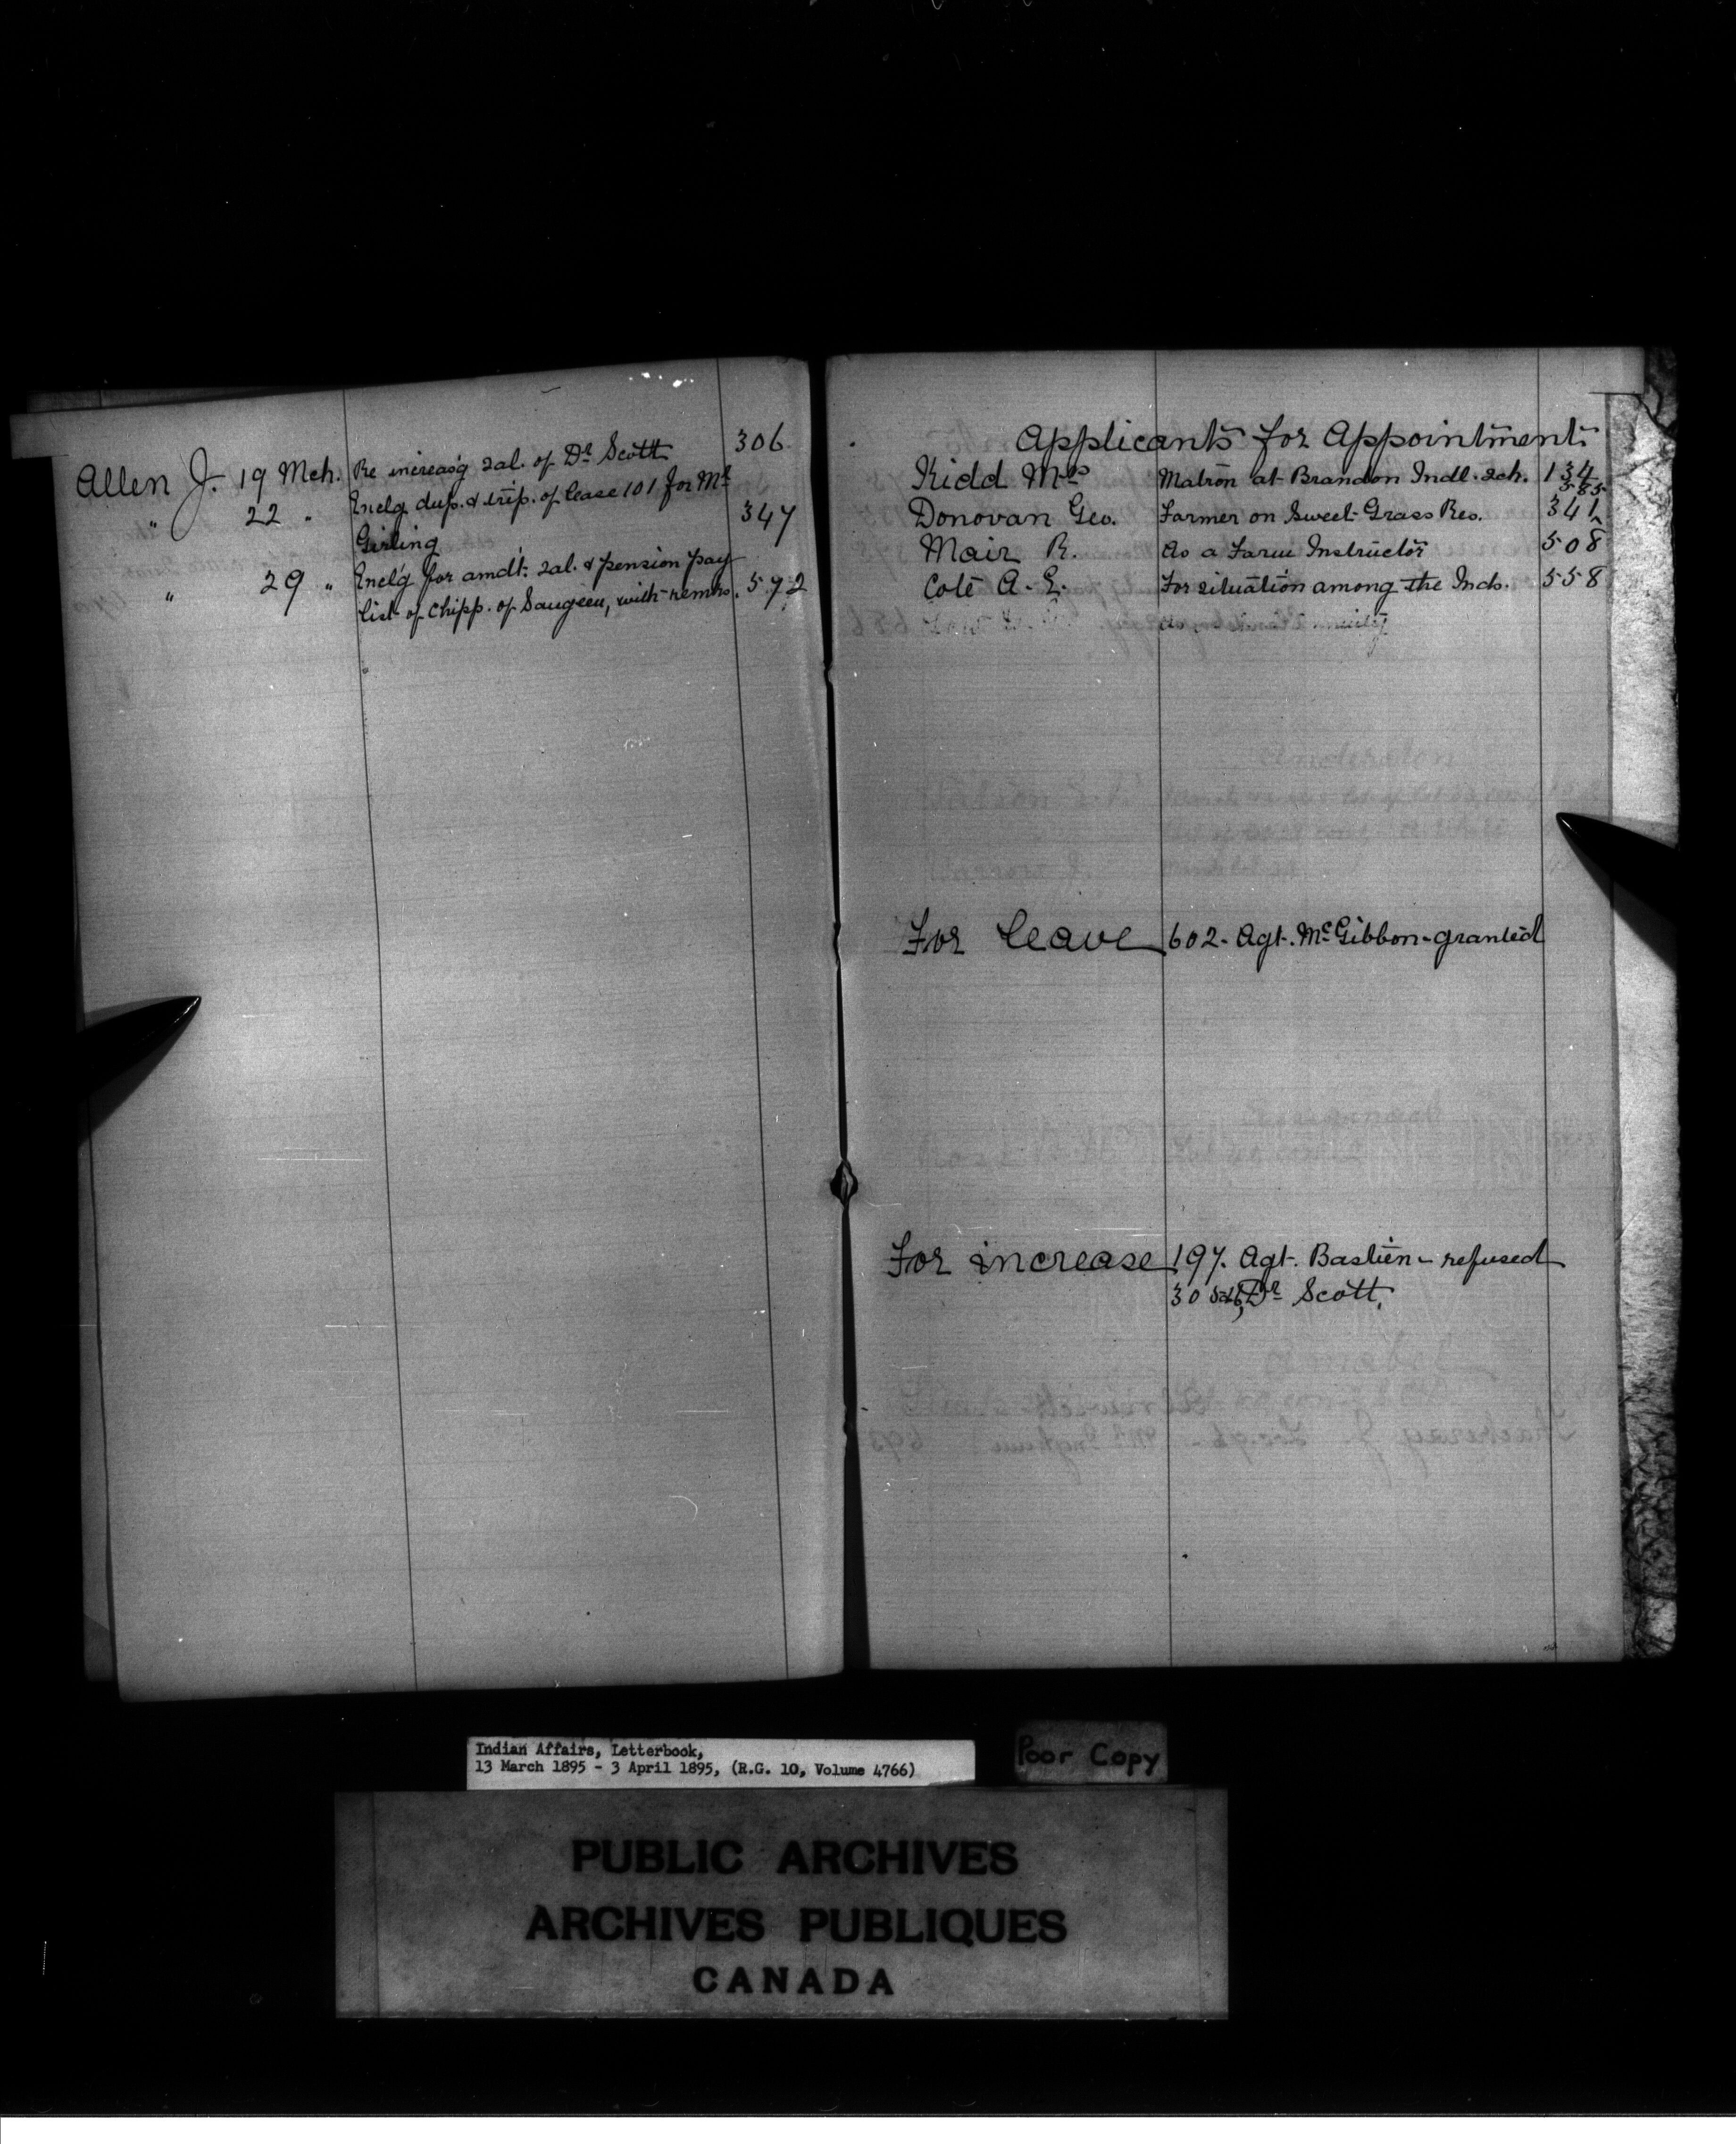 Allen J. 19 Mch. Re increas'g sal. of Dr Scott 306
" 22 " Enclg dup. & trip. of lease 101 for Mr
Girling 347
" 29 " Encl'g for amdt. sal. & pension pay
list of Chipp. of Saugeen, with remks. 572
Applicants for Appointment
Kidd Mrs Matron at Brandon Indl. Sch. 134
585
Donovan Geo. Farmer on Sweet Grass Res. 341
Mair R. As a Farm Instructor 508
Coté A. E. For situation among the Inds. 558
For leave 602 - Agt. McGibbon - granted
For increase 197. Agt. Bastien - refused
30 Dr Scott.
Indian Affairs, Letterbook,
13 March 1895 - 3 April 1895, (R.G. 10, Volume 4766)
Poor Copy
PUBLIC ARCHIVES
ARCHIVES PUBLIQUES
CANADA